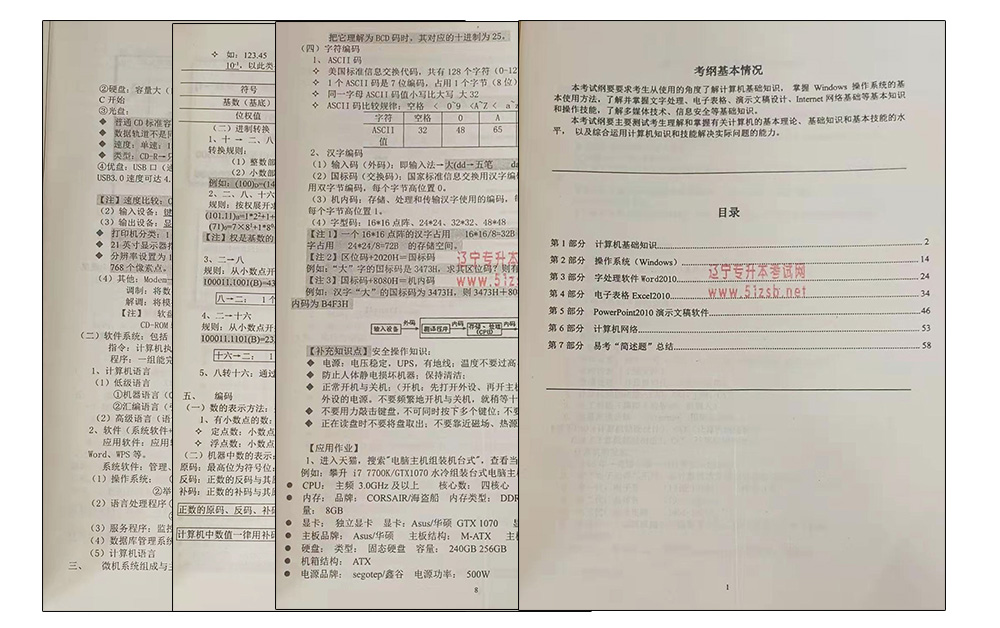 ②硬盘：容量大（
C 开始
③光盘：
◆ 普通 CD 标准容
◆ 数据轨道不是同
◆ 速度：单速：1
◆ 类型：CD-R→只
④优盘：USB 口（速
USB3.0 速度可达 4.
【注】速度比较：C
（2）输入设备：键
（3）输出设备：显
◆ 打印机分类：1
◆ 21 英寸显示器指
◆ 分辨率设置为 1
768 个像素点。
（4）其他：Modem
调制：将数
解调：将模
【注】 软盘
CD-ROM
（二）软件系统：包括
指令：计算机执
程序：一组能完
1、计算机语言
（1）低级语言
①机器语言（
②汇编语言（
（2）高级语言（语
2、软件（系统软件+
应用软件：应用
Word、WPS 等。
系统软件：管理、
（1）操作系统：
②单
（2）语言处理程序（
（3）服务程序：监控
（4）数据库管理系统
（5）计算机语言
三、 微机系统组成与主
✧ 如：123.45
10⁻¹，以此类
符号
基数（基底）
位权值
（二）进制转换
1、十 → 二、八
转换规则：
（1）整数部
（2）小数部
例如：(100)₀=(14
2、二、八、十六
规则：按权展开求
(101.11)₈=1*2²+1+
(71)₀=7×8¹+1*8⁰
【注】权是基数的
3、二→八
规则：从小数点开
100011.1001(B)=43
八→二： 1 个
4、二→十六
规则：从小数点开
100011.1101(B)=23.
十六→二： 1
5、八转十六：通过
五、 编码
（一）数的表示方法：
1、有小数点的数：
✧ 定点数：小数点
✧ 浮点数：小数点
（二）机器中数的表示：
原码：最高位为符号位：
反码：正数的反码与其原
补码：正数的补码与其原
正数的原码、反码、补码
计算机中数值一律用补码
把它理解为 BCD 码时，其对应的十进制为 25。
（四）字符编码
1、ASCII 码
✧ 美国标准信息交换代码，共有 128 个字符（0-12
✧ 1 个 ASCII 码是 7 位编码，占用 1 个字节（8 位）
✧ 同一字母 ASCII 码值小写比大写 大 32
✧ ASCII 码比较规律：空格 < 0~9 <A~Z < a~z
字符 空格 0 A
ASCII 值 32 48 65
2、汉字编码
（1）输入码（外码）：即输入法→大(dd→五笔 da
（2）国标码（交换码）：国家标准信息交换用汉字编
用双字节编码，每个字节高位置 0。
（3）机内码：存储、处理和传输汉字使用的编码，每
每个字节高位置 1。
（4）字型码：16*16 点阵、24*24、32*32、48*48
【注 1】一个 16*16 点阵的汉字占用 16*16/8=32B
字占用 24*24/8=72B 的存储空间。
【注 2】区位码+2020H=国标码
例如：“大”字的国标码是 3473H，求其区位码？则有
【注 3】国标码+8080H=机内码
例如：汉字“大”的国标码为 3473H，则 3473H+80
内码为 B4F3H
输入设备 外码 翻译程序 内码 存储、处理（CPU） 内码
【补充知识点】安全操作知识：
◆ 电源：电压稳定，UPS，有地线；温度不要过高
◆ 防止人体静电损坏机器；保持清洁；
◆ 正常开机与关机：（开机：先打开外设、再开主机
外设的电源。不要频繁地开机与关机，就稍等十
◆ 不要用力敲击键盘，不可同时按下多个键位；不要
◆ 正在读盘时不要将盘取出；不要靠近磁场、热源
【应用作业】
1、进入天猫，搜索"电脑主机组装机台式"，查看当
例如：攀升 i7 7700K/GTX1070 水冷组装台式电脑主
● CPU： 主频 3.0GHz 及以上 核心数： 四核心
● 内存： 品牌： CORSAIR/海盗船 内存类型： DDR
量： 8GB
● 显卡： 独立显卡 显卡：Asus/华硕 GTX 1070
● 主板品牌： Asus/华硕 主板结构： M-ATX 主
● 硬盘： 类型： 固态硬盘 容量： 240GB 256GB
● 机箱结构： ATX
● 电源品牌： segotep/鑫谷 电源功率： 500W
8
考纲基本情况
本考试纲要要求考生从使用的角度了解计算机基础知识，掌握 Windows 操作系统的基
本使用方法，了解并掌握文字处理、电子表格、演示文稿设计、Internet 网络基础等基本知识
和操作技能，了解多媒体技术、信息安全等基础知识。
本考试纲要主要测试考生理解和掌握有关计算机的基本理论、基础知识和基本技能的水
平，以及综合运用计算机知识和技能解决实际问题的能力。
目录
第 1 部分 计算机基础知识 2
第 2 部分 操作系统（Windows） 14
第 3 部分 字处理软件 Word2010 24
第 4 部分 电子表格 Excel2010 34
第 5 部分 PowerPoint2010 演示文稿软件 46
第 6 部分 计算机网络 53
第 7 部分 易考“简述题”总结 58
辽宁专升本考试网
www.5izsb.net
1